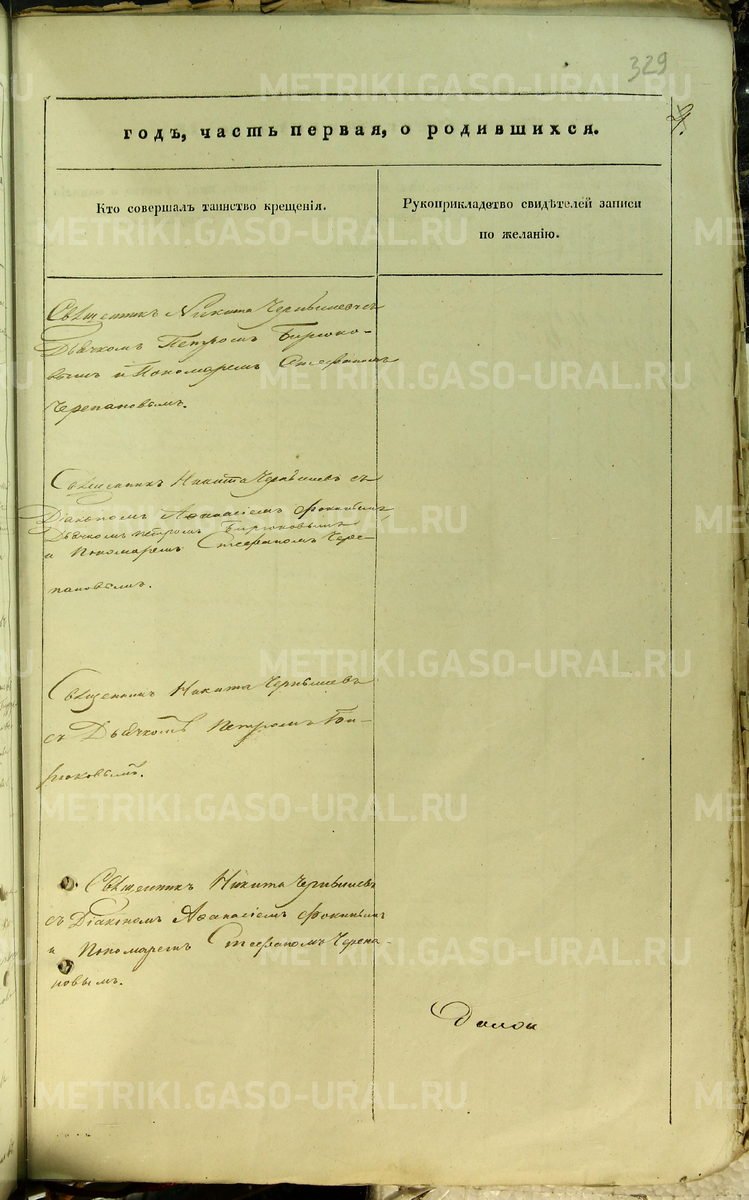 329
METRIKI.GASO-URAL.RU
годъ, часть первая, о родившихся.
Кто совершалъ таинство крещенія.
Рукоприкладство свидѣтелей записи
по желанію.
Священникъ Никита Чернышевъ съ
Дьячкомъ Петромъ Бирюко-
вымъ и Пономаремъ Стефаномъ
Черепановымъ.
Священникъ Никита Чернышевъ съ
Діакономъ Аѳанасіемъ Фокинымъ
Дьячкомъ Петромъ Бирюковымъ
и Пономаремъ Стефаномъ Чере-
пановымъ.
Священникъ Никита Чернышевъ
съ Дьячкомъ Петромъ Би-
рюковымъ.
Священникъ Никита Чернышевъ
съ Діакономъ Аѳанасіемъ Фокинымъ
и Пономаремъ Стефаномъ Черепа-
новымъ.